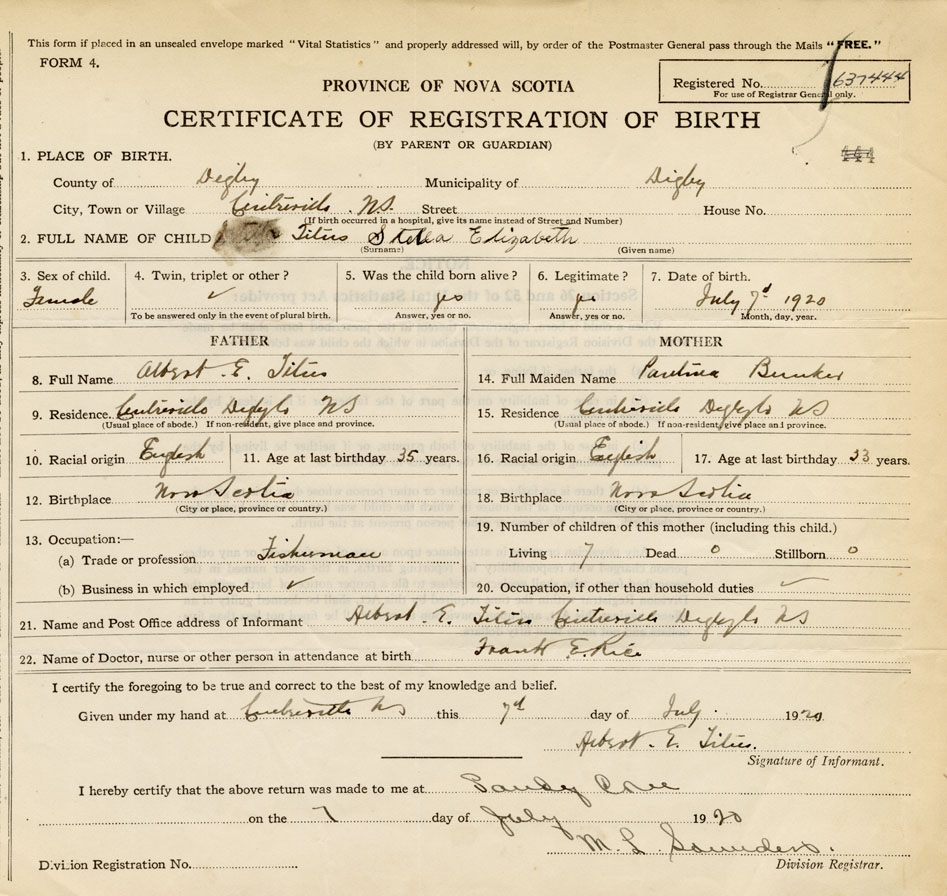 This form if placed in an unsealed envelope marked "Vital Statistics" and properly addressed will, by order of the Postmaster General pass through the Mails "FREE."
FORM 4.
Registered No. 637444
For use of Registrar General only.
PROVINCE OF NOVA SCOTIA
CERTIFICATE OF REGISTRATION OF BIRTH
(BY PARENT OR GUARDIAN)
444
1. PLACE OF BIRTH.
County of Digby Municipality of Digby
City, Town or Village Centreville N.S. Street House No.
(If birth occurred in a hospital, give its name instead of Street and Number)
2. FULL NAME OF CHILD Titus Stella Elizabeth
(Surname) (Given name)
3. Sex of child. 4. Twin, triplet or other? 5. Was the child born alive? 6. Legitimate? 7. Date of birth.
Female ✓ yes yes July 7d 1920
To be answered only in the event of plural birth. Answer, yes or no. Answer, yes or no. Month, day, year.
FATHER
8. Full Name Albert . E. Titus
9. Residence. Centreville Digby Co NS
(Usual place of abode.) If non-resident, give place and province.
10. Racial origin English 11. Age at last birthday 35 years.
12. Birthplace Nova Scotia
(City or place, province or country.)
13. Occupation:—
(a) Trade or profession Fisherman
(b) Business in which employed ✓
MOTHER
14. Full Maiden Name Bunker
15. Residence Centreville Digby Co NS
(Usual place of abode.) If non-resident, give place and province.
16. Racial origin English 17. Age at last birthday 33 years.
18. Birthplace Nova Scotia
(City or place, province or country.)
19. Number of children of this mother (including this child.)
Living 7 Dead 0 Stillborn 0
20. Occupation, if other than household duties ✓
21. Name and Post Office address of Informant Albert . E. Titus Centreville Digby Co NS
22. Name of Doctor, nurse or other person in attendance at birth Frank E. Rice
I certify the foregoing to be true and correct to the best of my knowledge and belief.
Given under my hand at Centreville NS this 7d day of July 1920
Albert . E. Titus.
Signature of Informant.
I hereby certify that the above return was made to me at Sandy Cove
on the 7 day of July 1920
M. L. Saunders.
Division Registration No. Division Registrar.